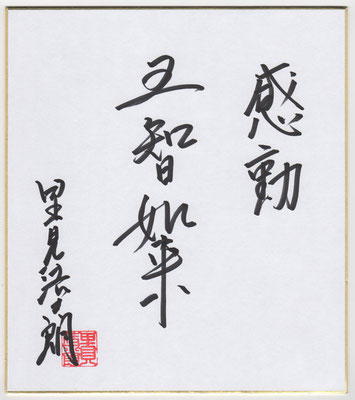 感動
五智如来
里見浩太朗